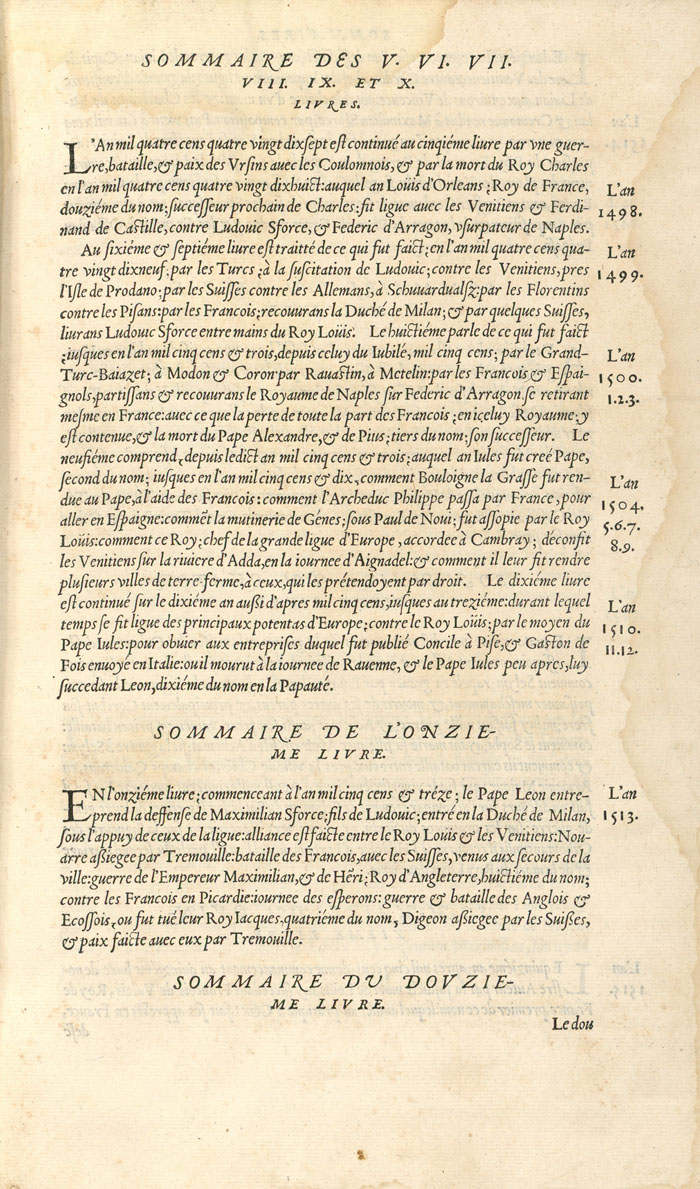 SOMMAIRE DES V. VI. VII.
VIII. IX. ET X.
LIVRES.
L'An mil quatre cens quatre vingt dixsept est continué au cinqiéme liure par vne guer-
re,bataille,& paix des Vrsins auec les Coulomnois, & par la mort du Roy Charles
en l'an mil quatre cens quatre vingt dixhuict:auquel an Loüis d'Orleans ; Roy de France,
L'an
douziéme du nom: successeur prochain de Charles:fit ligue auec les Venitiens & Ferdi-
1498.
nand de Castille, contre Ludouic Sforce, & Federic d'Arragon, vsurpateur de Naples.
Au sixiéme & septiéme liure est traitté de ce qui fut faict; en l'an mil quatre cens qua-
L'an
tre vingt dixneuf: par les Turcs ; à la suscitation de Ludouic; contre les Venitiens, pres
1499.
l'Isle de Prodano:par les Suisses contre les Allemans, à Schuuardualsz:par les Florentins
contre les Pisans:par les Francois;recourans la Duché de Milan; & par quelques Suisses,
liurans Ludouic Sforce entre mains du Roy Loüis. Le huictiéme parle de ce qui fut faict
;iusques en l'an mil cinq cens & trois,depuis celuy du Iubilé, mil cinq cens; par le Grand-
L'an
Turc-Baiazet; à Modon & Coron:par Rauastin, à Metelin:par les Francois & Espai-
1500.
gnols,partissans & recourans le Royaume de Naples sur Federic d'Arragon se retirant
1.2.3.
mesme en France:auec ce que la perte de toute la part des Francois ; en iceluy Royaume;y
est contenue,& la mort du Pape Alexandre,& de Pius; tiers du nom: son successeur. Le
neufiéme comprend, depuis ledict an mil cinq cens & trois; auquel an Iules fut creé Pape,
second du nom; iusques en l'an mil cinq cens & dix, comment Bouloigne la Grasse fut ren-
L'an
due au Pape,à l'aide des Francois: comment l'Archeduc Philippe passa par France, pour
1504.
aller en Espaigne:commēt la mutinerie de Génes; sous Paul de Noui: fut assopie par le Roy
5.6.7.
Loüis:comment ce Roy; chef de la grande ligue d'Europe , accordee à Cambray ; déconfit
8.9.
les Venitiens sur la riuiere d'Adda,en la iournee d'Aignadel:& comment il leur fit rendre
plusieurs villes de terre-ferme, à ceux,qui les prétendoyent par droit. Le dixiéme liure
est continué sur le dixiéme an außi d'apres mil cinq cens,iusques au treziéme:durant lequel
L'an
temps se fit ligue des principaux potentas d'Europe; contre le Roy Loüis; par le moyen du
1510.
Pape Iules:pour obuier aux entreprises duquel fut publié Concile à Pise,& Gaston de
11.12.
Fois enuoye en Italie:ou il mourut à la iournee de Rauenne, & le Pape Iules peu apres,luy
succedant Leon, dixiéme du nom en la Papauté.
SOMMAIRE DE L'ONZIE-
ME LIVRE.
EN l'onziéme liure; commenceant à l'an mil cinq cens & tréze ; le Pape Leon entre-
L'an
prend la deffénse de Maximilian Sforce; fils de Ludouic; entré en la Duché de Milan,
1513.
sous l'appuy de ceux de la ligue:alliance est faicte entre le Roy Loüis & les Venitiens:Nou-
arre aßiegee par Tremouille:bataille des Francois,auec les Suisses, venus aux secours de la
ville:guerre de l'Empereur Maximilian,& de Hēri; Roy d'Angleterre, huictiéme du nom;
contre les Francois en Picardie:iournee des esperons: guerre & bataille des Anglois &
Ecossois, ou fut tué leur Roy Iacques, quatriéme du nom, Digeon aßiegee par les Suißes,
& paix faicte auec eux par Tremouille.
SOMMAIRE DU DOVZIE-
ME LIVRE.
Le dou